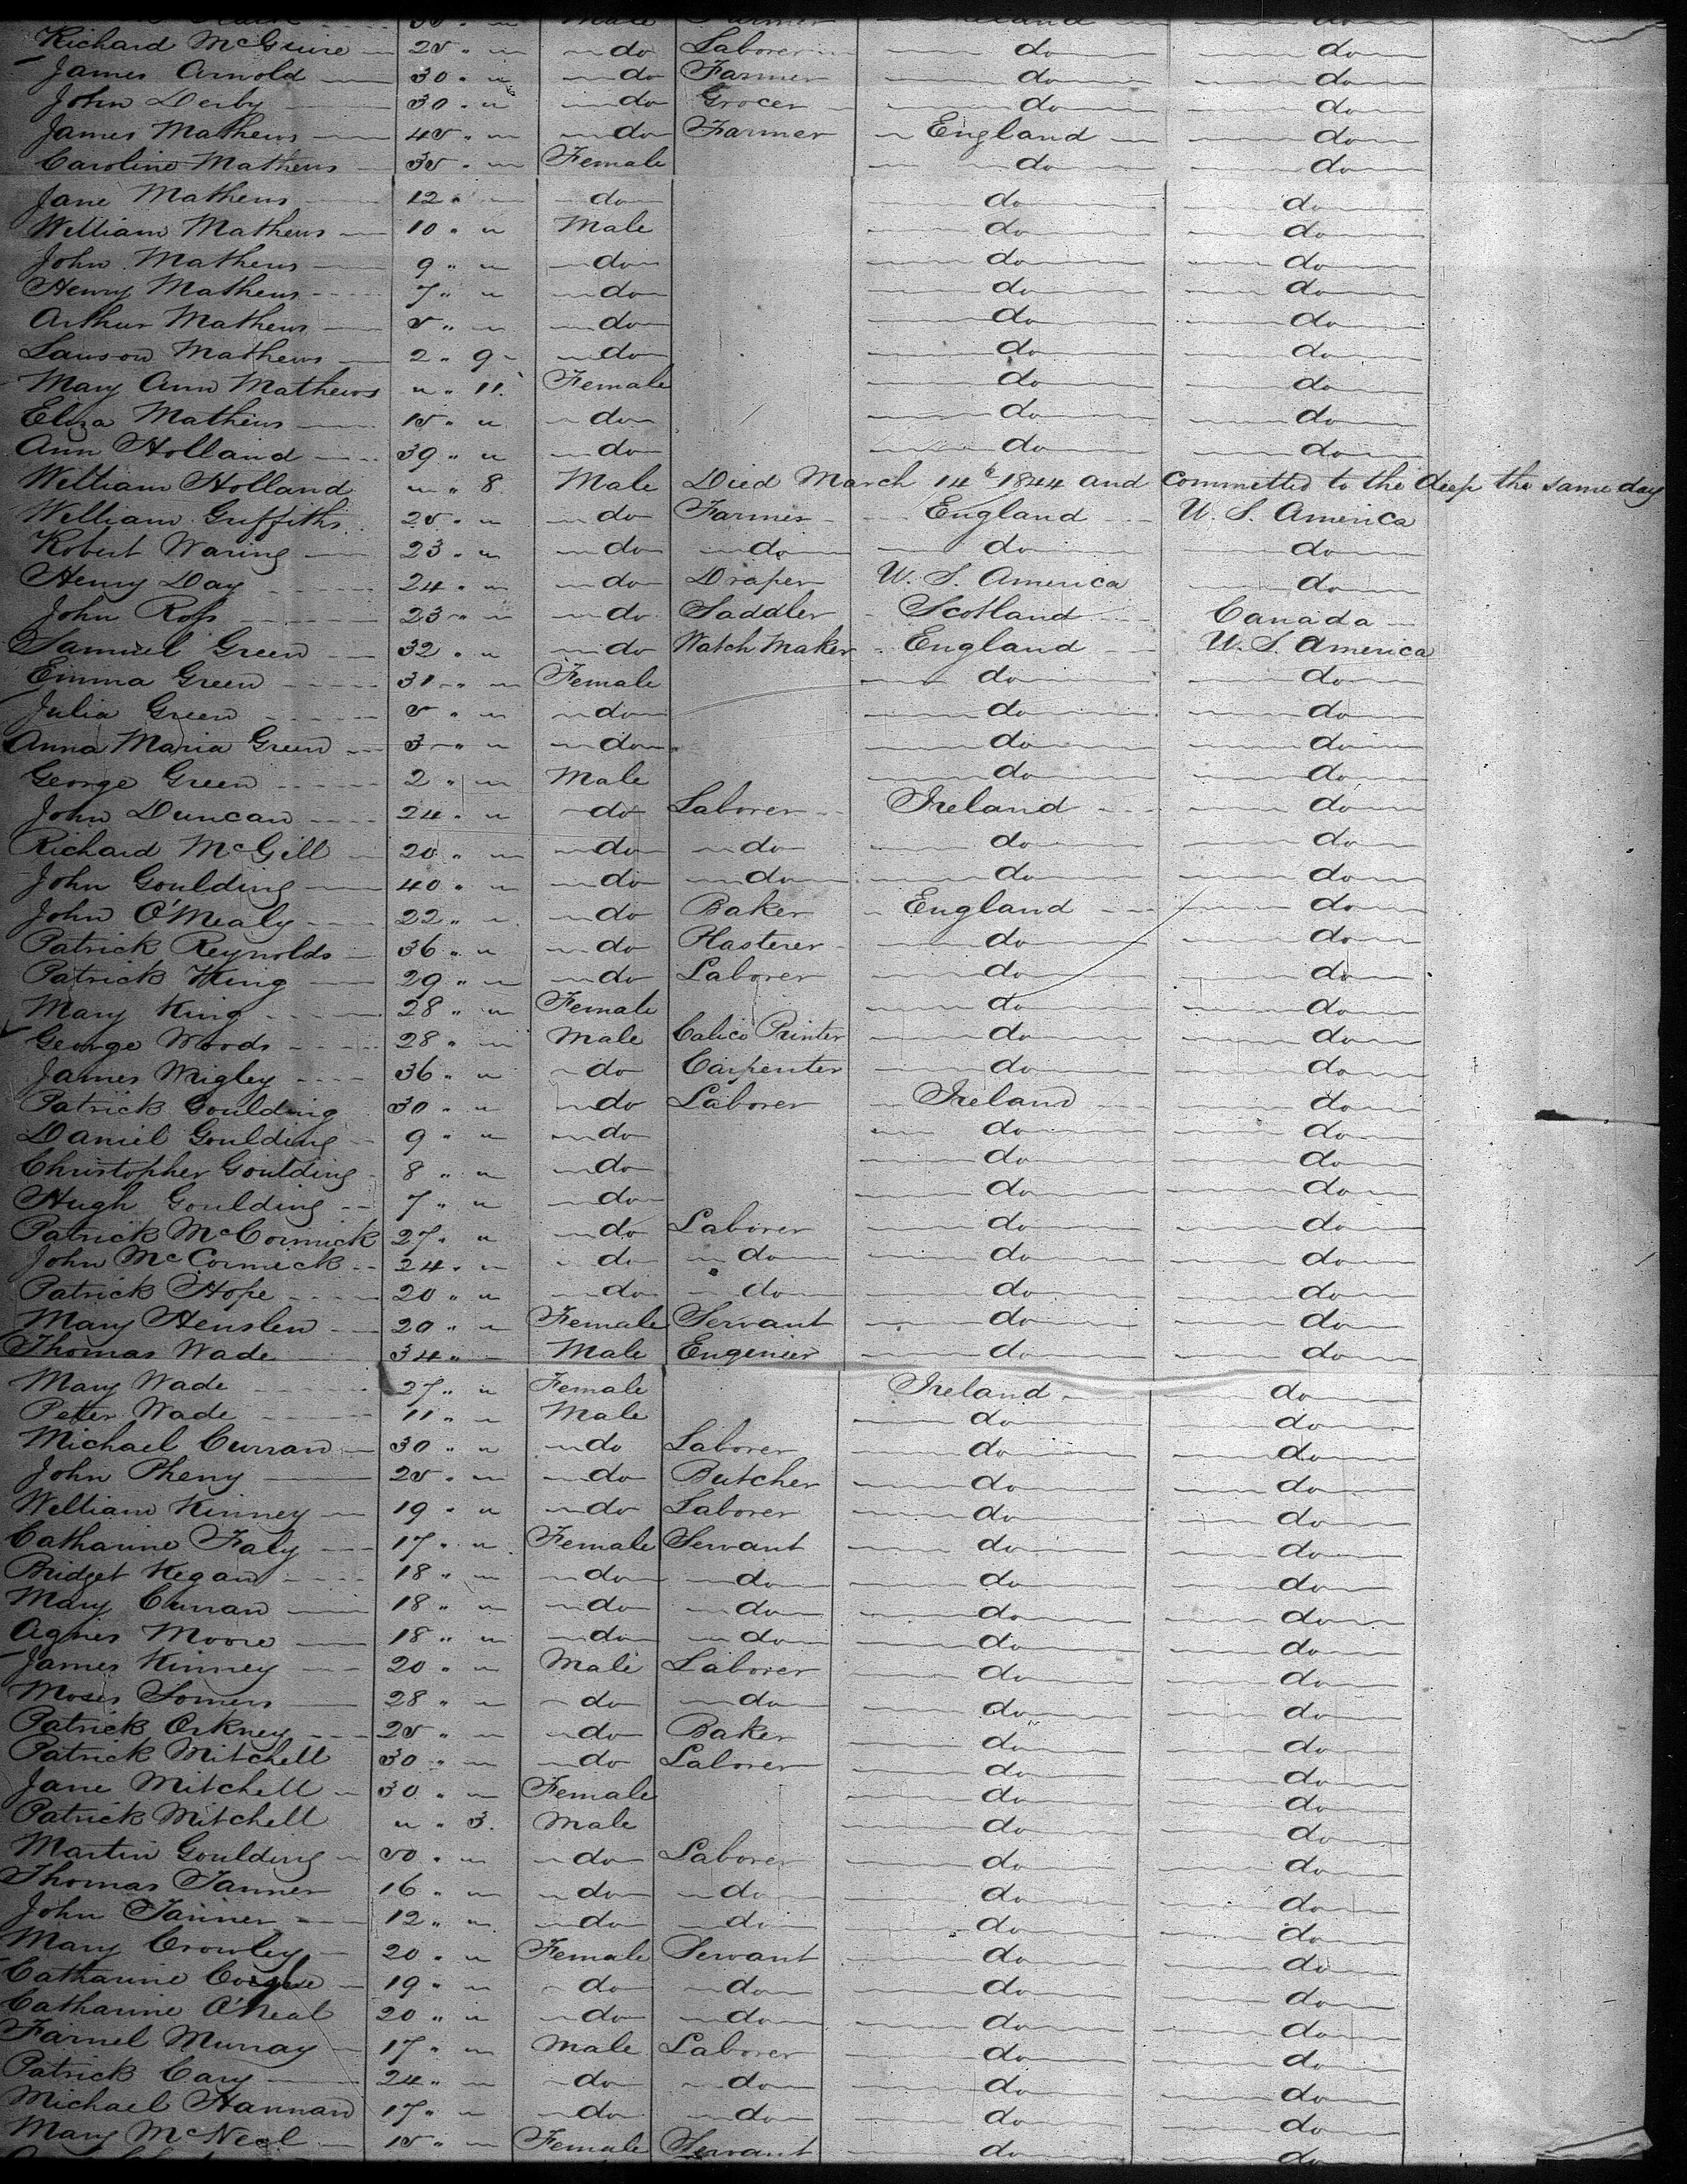 Richard McGuire 25 " " do Laborer do do
James Arnold 30 " " do Farmer do do
John Derby 30 " " do Grocer do do
James Mathews 45 " " do Farmer England do
Caroline Mathews 35 " " Female do do
Jane Mathews 12 " " do do do
William Mathews 10 " " Male do do
John Mathews 9 " " do do do
Henry Mathews 7 " " do do do
Arthur Mathews 5 " " do do do
Lawson Mathews 2 " 9 do do do
Mary Ann Mathews " " 11 Female do do
Eliza Mathews 15 " " do do do
Ann Holland 39 " " do do do
William Holland " " 8 Male Died March 14th 1844 and Committed to the deep the same day
William Griffiths 25 " " do Farmer England U. S. America
Robert Waring 23 " " do do do do
Henry Day 24 " " do Draper U. S. America do
John Ross 23 " " do Saddler Scotland Canada
Samuel Green 32 " " do Watch Maker England U. S. America
Emma Green 31 " " Female do do
Julia Green 5 " " do do do
Anna Maria Green 3 " " do do do
George Green 2 " " Male do do
John Duncan 24 " " do Laborer Ireland do
Richard McGill 20 " " do do do do
John Goulding 40 " " do do do do
John O'Mealy 22 " " do Baker England do
Patrick Reynolds 36 " " do Plasterer do do
Patrick King 29 " " do Laborer do do
Mary King 28 " " Female do do
George Woods 28 " " Male Calico Printer do do
James Wrigley 36 " " do Carpenter do do
Patrick Goulding 30 " " do Laborer Ireland do
Daniel Goulding 9 " " do do do
Christopher Goulding 8 " " do do do
Hugh Goulding 7 " " do do do
Patrick McCormick 27 " " do Laborer do do
John McCormick 24 " " do do do do
Patrick Hope 20 " " do do do do
Mary Henslen 20 " " Female Servant do do
Thomas Wade 34 " " Male Engenier do do
Mary Wade 27 " " Female Ireland do
Peter Wade 11 " " Male do do
Michael Curran 30 " " do Laborer do do
John Pheny 25 " " do Butcher do do
William Kinney 19 " " do Laborer do do
Catharine Faly 17 " " Female Servant do do
Bridget Kegan 18 " " do do do do
Mary Curran 18 " " do do do do
Agnes Moore 18 " " do do do do
James Kinney 20 " " Male Laborer do do
Moses Somers 28 " " do do do do
Patrick Orkney 25 " " do Baker do do
Patrick Mitchell 30 " " do Laborer do do
Jane Mitchell 30 " " Female do do
Patrick Mitchell " " 3 Male do do
Martin Goulding 50 " " do Laborer do do
Thomas Tanner 16 " " do do do do
John Tanner 12 " " do do do do
Mary Crowley 20 " " Female Servant do do
Catharine 19 " " do do do do
Catharine O'Neal 20 " " do do do do
Farnel Murray 17 " " Male Laborer do do
Patrick Cary 24 " " do do do do
Michael Hannan 17 " " do do do do
Mary McNeal 15 " " Female Servant do do